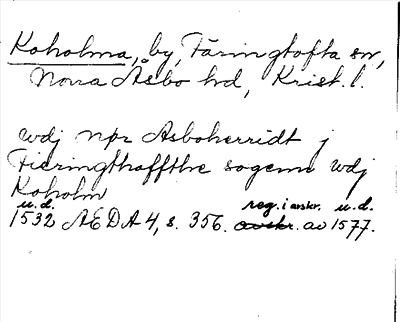 Koholma, by, Färingtofta sn,
Norra Åsbo hd, Krist. l.
wdj npr Asboherridt j
Fieringthoffthe sogenn wdj
Koholm
u.d. reg. i avskr. u.d.
1532 ÆDA 4, s. 356. avskr. av 1577.